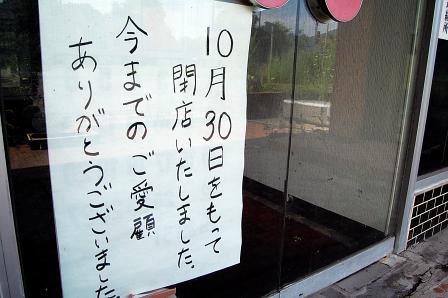 10月30日をもって
閉店いたしました。
今までのご愛顧
ありがとうございました